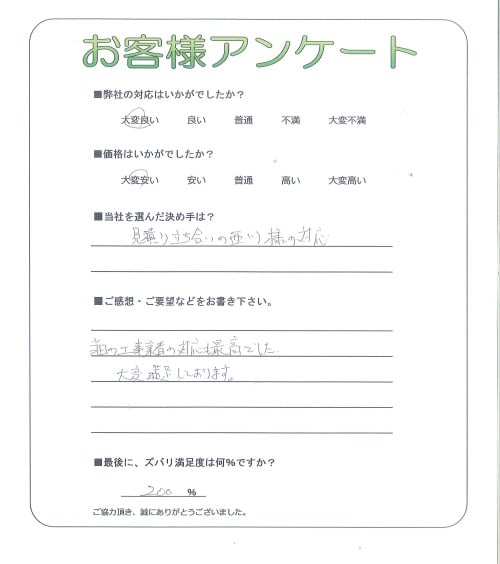 お客様アンケート
■弊社の対応はいかがでしたか？
大変良い 良い 普通 不満 大変不満
■価格はいかがでしたか？
大変安い 安い 普通 高い 大変高い
■当社を選んだ決め手は？
見積り立ち合いの西川様の対応
■ご感想・ご要望などをお書き下さい。
工事業者の対応も最高でした
大変満足しております。
■最後に、ズバリ満足度は何％ですか？
200 %
ご協力頂き、誠にありがとうございました。